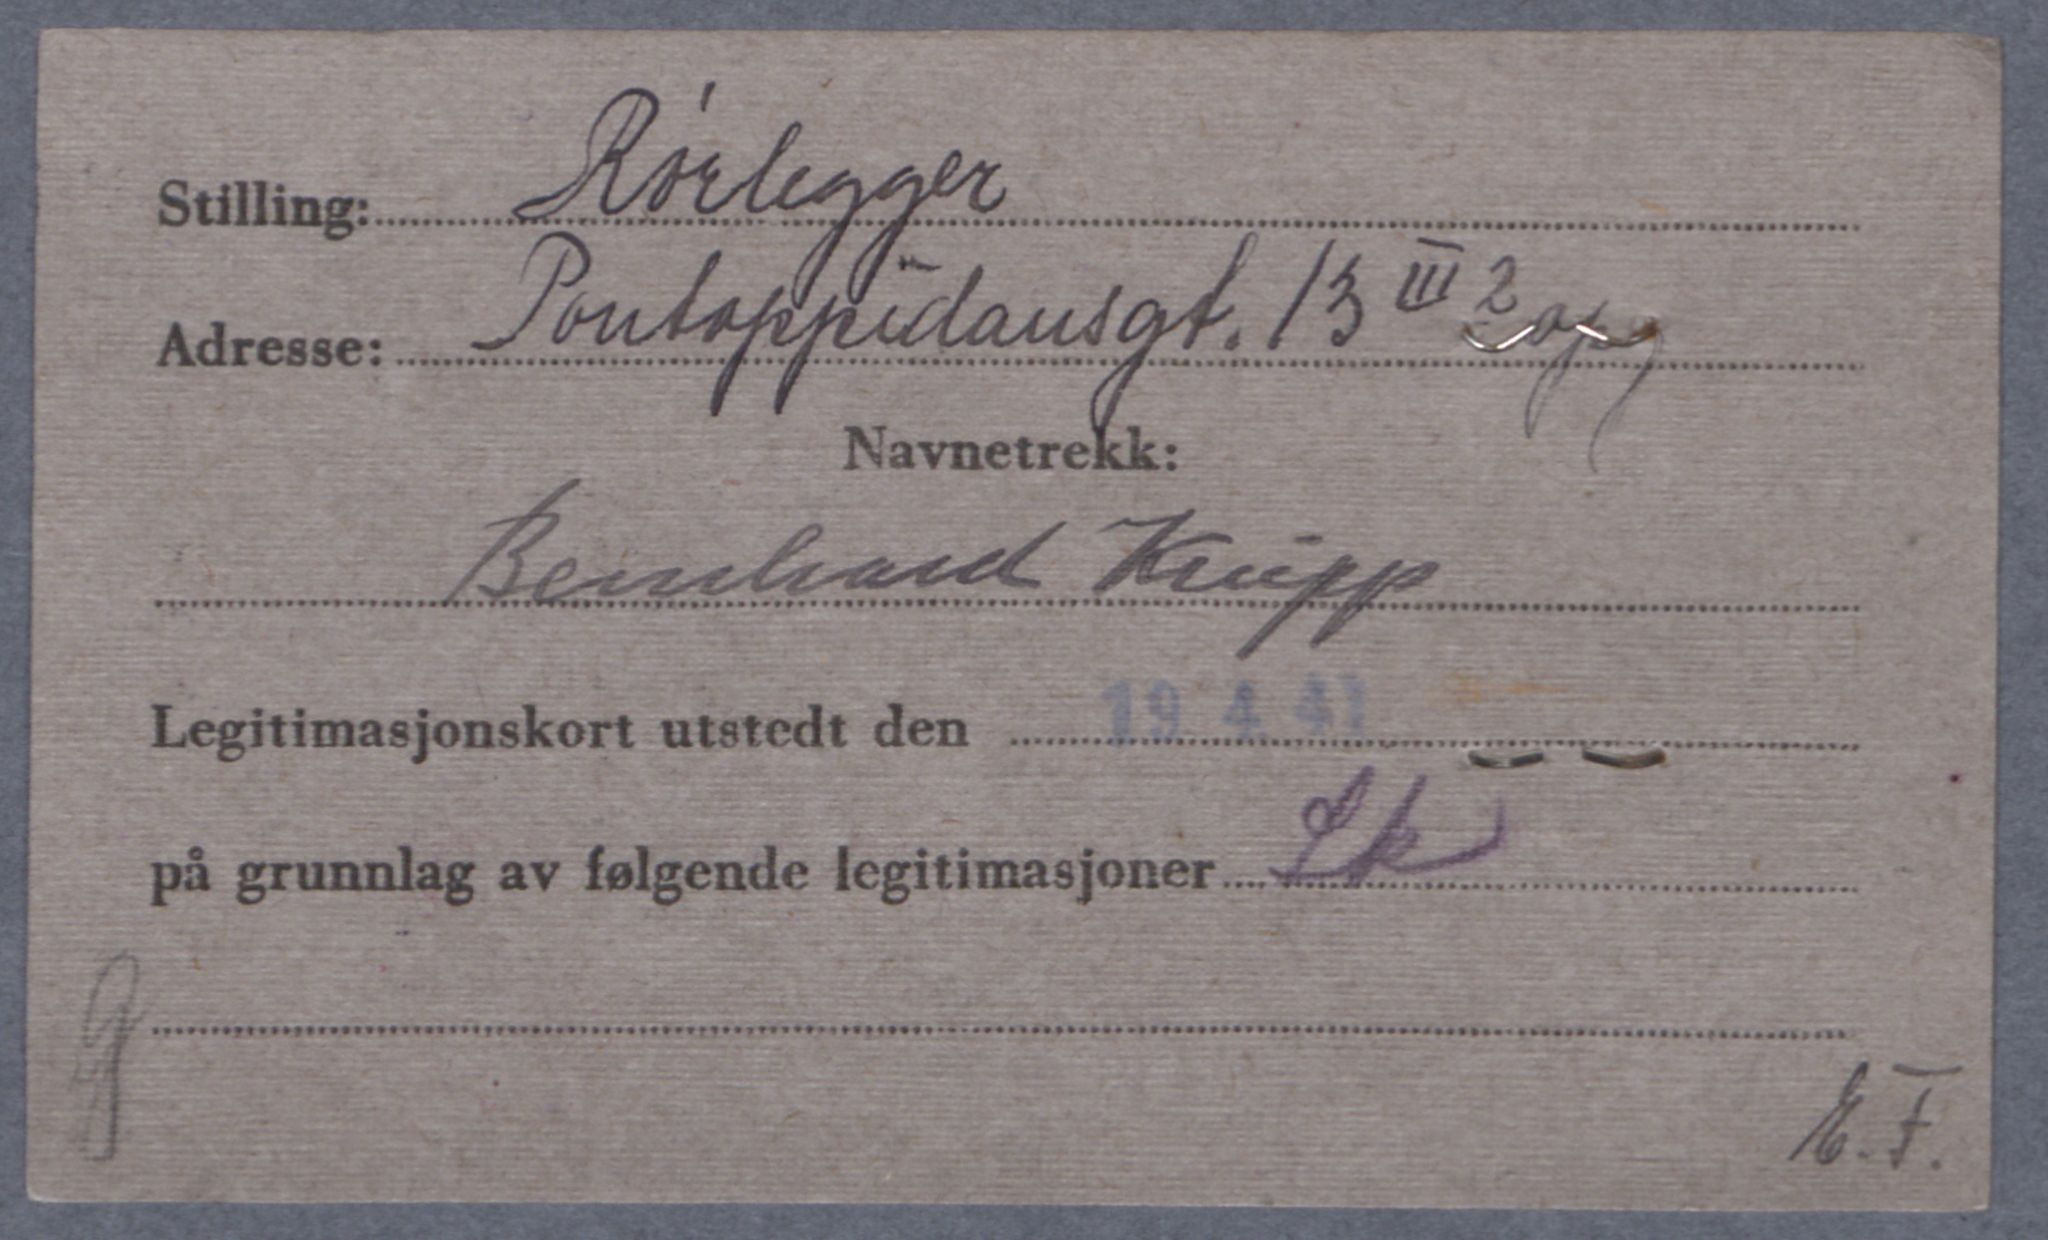 Stilling: Rörlegger
Adresse: Pontoppidansgt. 13 III 2 opg
Navnetrekk:
Bernhard Krupp
Legitimasjonskort utstedt den 19 4 41
på grunnlag av følgende legitimasjoner Lk
G
E. F.